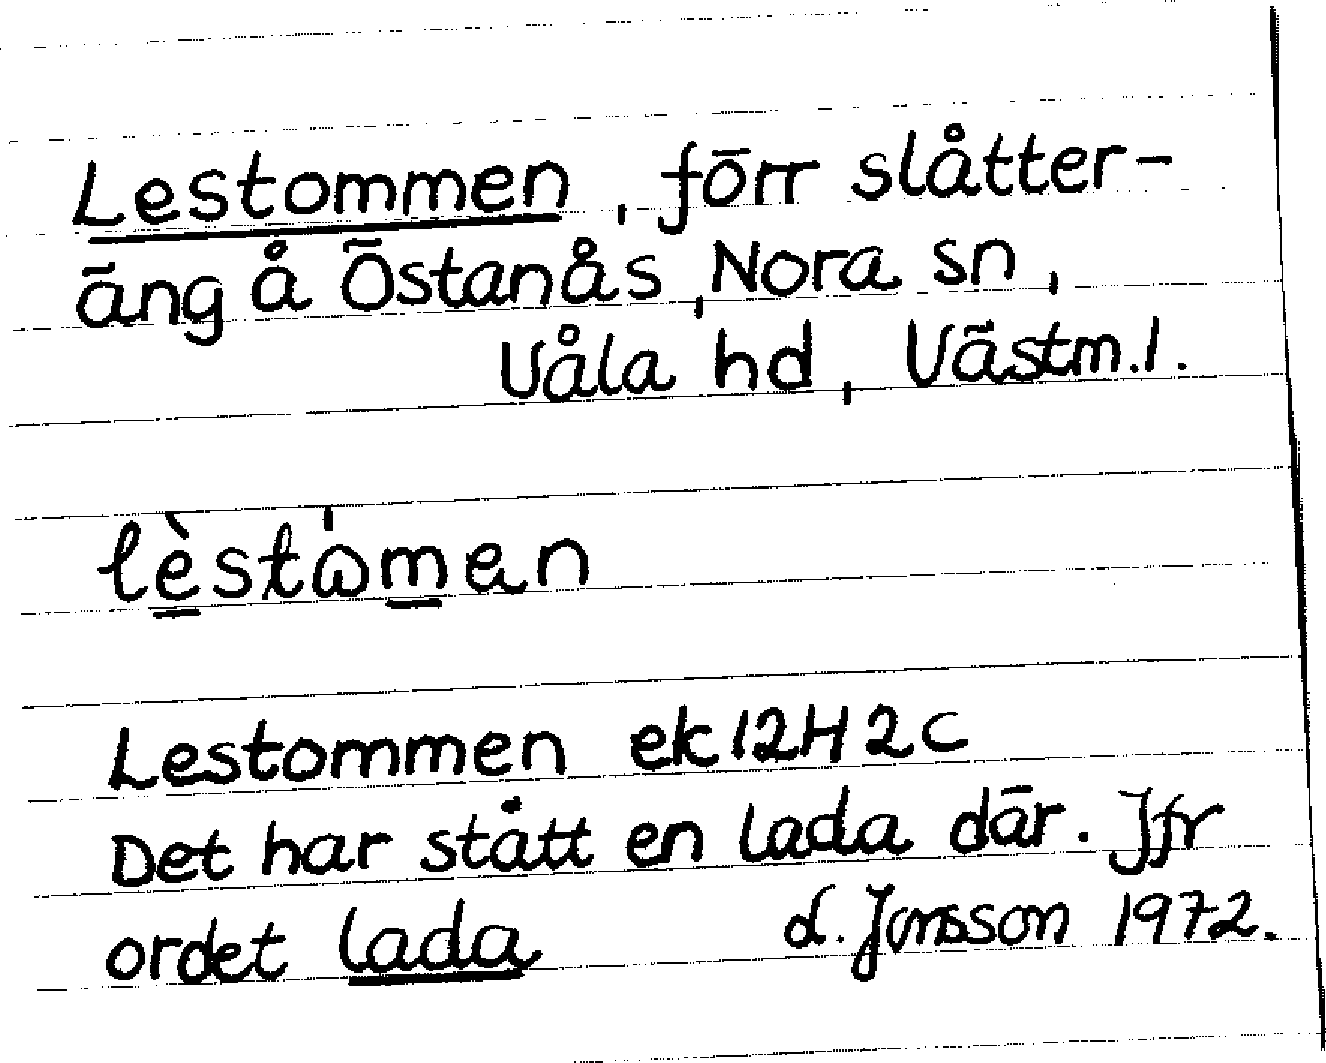 Lestommen, förr slåtter-
äng å Östanås, Nora sn,
Våla hd, Västm.l.
lèstòmen
Lestommen ek 12H2c
Det har stått en lada där. Jfr
ordet lada d. Jonsson 1972.